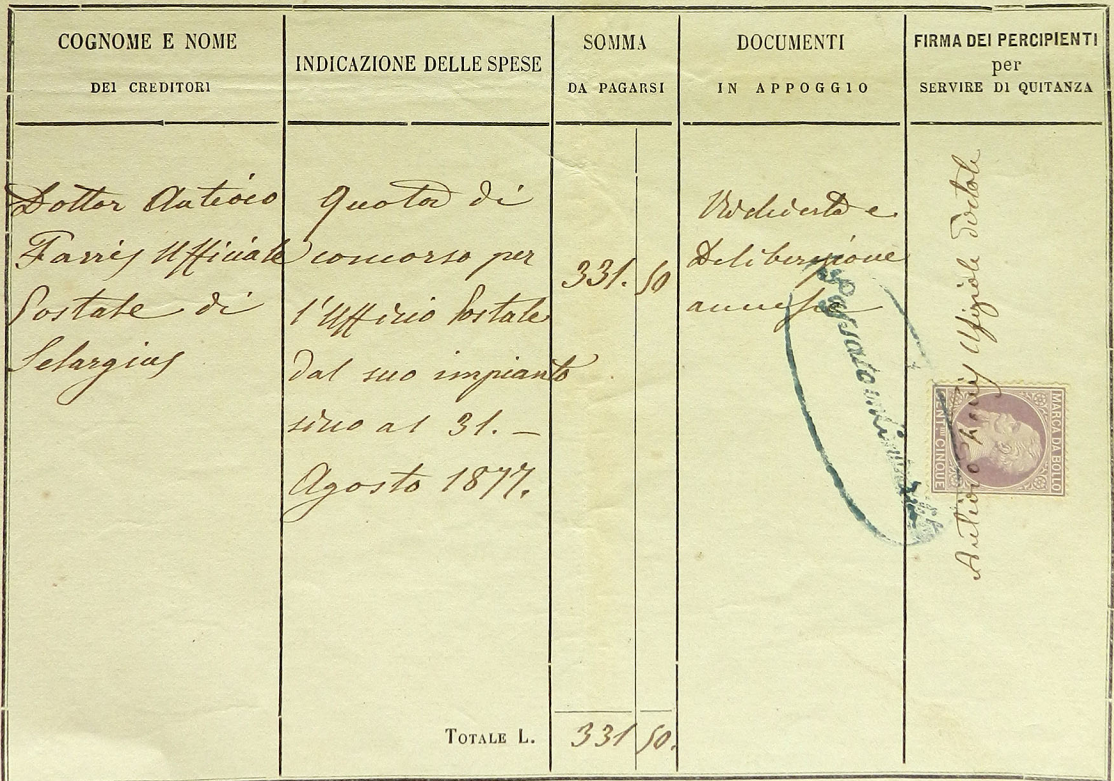 COGNOME E NOME
DEI CREDITORI
INDICAZIONE DELLE SPESE
SOMMA
DA PAGARSI
DOCUMENTI
IN APPOGGIO
FIRMA DEI PERCIPIENTI
per
SERVIRE DI QUITANZA
Dottor Antioco
Farris Ufficiale
Postale di
Selargius
Quota di
concorso per
l'Ufficio Postale
dal suo impianto
sino al 31. —
Agosto 1877.
331. 50
Deliberazione
annesse
Antioco Ufiziale
MARCA DA BOLLO
CENT.MI CINQUE
TOTALE L.
331 50.